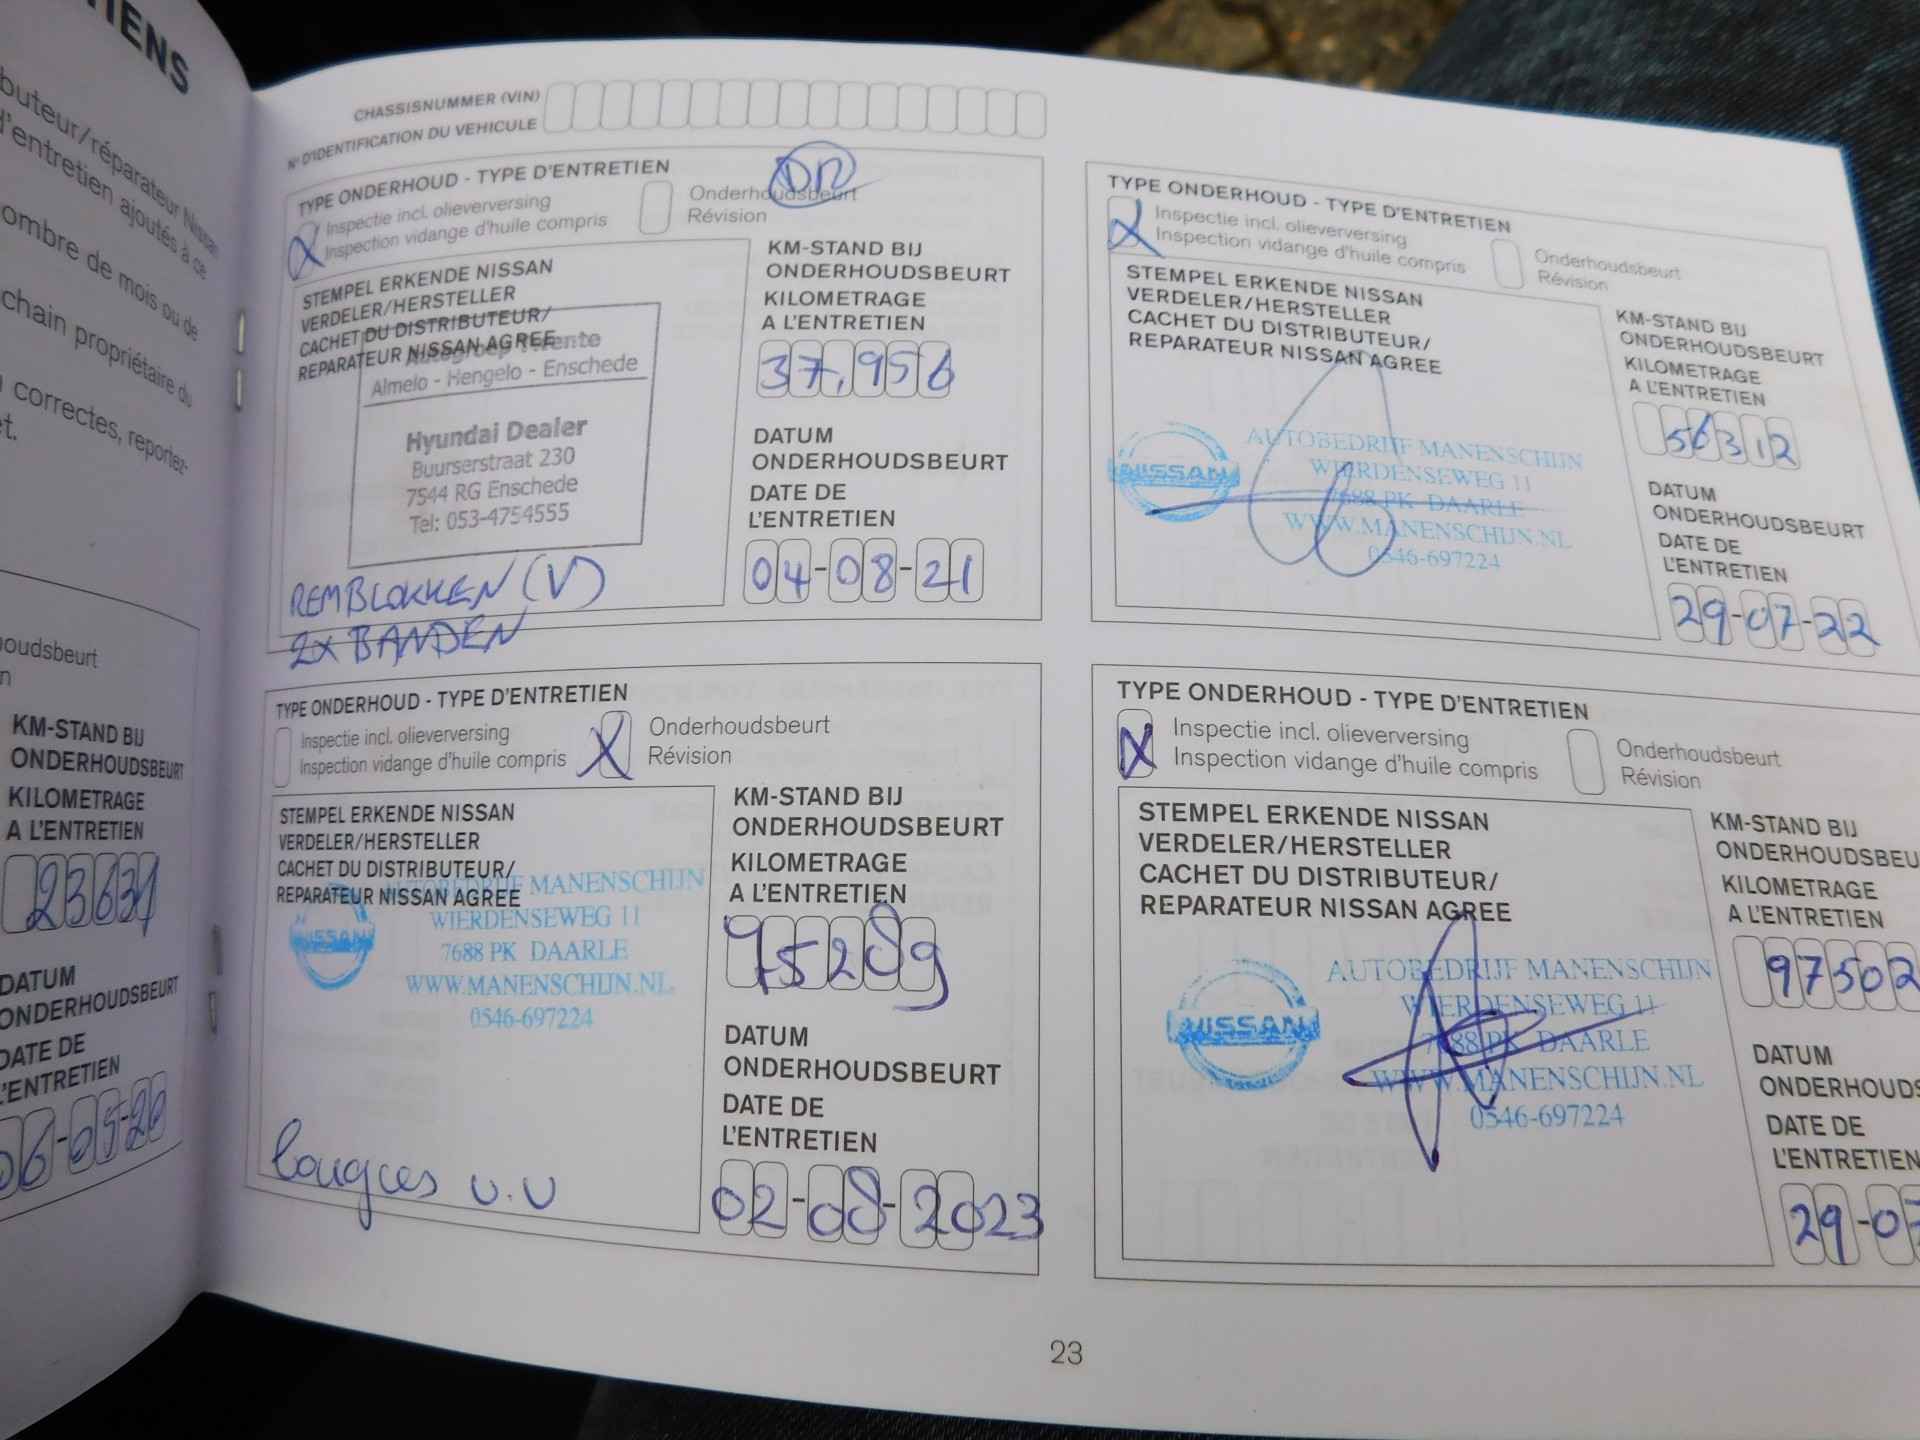 IENS
buteur/réparateur Nissan
d'entretien ajoutés à ce
ombre de mois ou de
chain propriétaire du
correctes, reportez-
et.
KM-STAND BIJ
ONDERHOUDSBEURT
KILOMETRAGE
A L'ENTRETIEN
23631
DATUM
ONDERHOUDSBEURT
DATE DE
L'ENTRETIEN
06-05-20
CHASSISNUMMER (VIN)
N° D'IDENTIFICATION DU VEHICULE
TYPE ONDERHOUD - TYPE D'ENTRETIEN
X Inspectie incl. olieverversing
Inspection vidange d'huile compris
Onderhoudsbeurt
Révision
STEMPEL ERKENDE NISSAN
VERDELER/HERSTELLER
CACHET DU DISTRIBUTEUR/
REPARATEUR NISSAN AGREE
Autogroep Twente
Almelo - Hengelo - Enschede
Hyundai Dealer
Buurserstraat 230
7544 RG Enschede
Tel: 053-4754555
REMBLOKKEN (V)
2x BANDEN
KM-STAND BIJ
ONDERHOUDSBEURT
KILOMETRAGE
A L'ENTRETIEN
37.956
DATUM
ONDERHOUDSBEURT
DATE DE
L'ENTRETIEN
04-08-21
TYPE ONDERHOUD - TYPE D'ENTRETIEN
X Inspectie incl. olieverversing
Inspection vidange d'huile compris
Onderhoudsbeurt
Révision
STEMPEL ERKENDE NISSAN
VERDELER/HERSTELLER
CACHET DU DISTRIBUTEUR/
REPARATEUR NISSAN AGREE
NISSAN
AUTOBEDRIJF MANENSCHIJN
WIERDENSEWEG 11
7688 PK DAARLE
WWW.MANENSCHIJN.NL
0546-697224
KM-STAND BIJ
ONDERHOUDSBEURT
KILOMETRAGE
A L'ENTRETIEN
56312
DATUM
ONDERHOUDSBEURT
DATE DE
L'ENTRETIEN
29-07-22
TYPE ONDERHOUD - TYPE D'ENTRETIEN
Inspectie incl. olieverversing
Inspection vidange d'huile compris
X Onderhoudsbeurt
Révision
STEMPEL ERKENDE NISSAN
VERDELER/HERSTELLER
CACHET DU DISTRIBUTEUR/
REPARATEUR NISSAN AGREE
NISSAN
AUTOBEDRIJF MANENSCHIJN
WIERDENSEWEG 11
7688 PK DAARLE
WWW.MANENSCHIJN.NL
0546-697224
KM-STAND BIJ
ONDERHOUDSBEURT
KILOMETRAGE
A L'ENTRETIEN
75289
DATUM
ONDERHOUDSBEURT
DATE DE
L'ENTRETIEN
02-08-2023
TYPE ONDERHOUD - TYPE D'ENTRETIEN
X Inspectie incl. olieverversing
Inspection vidange d'huile compris
Onderhoudsbeurt
Révision
STEMPEL ERKENDE NISSAN
VERDELER/HERSTELLER
CACHET DU DISTRIBUTEUR/
REPARATEUR NISSAN AGREE
NISSAN
AUTOBEDRIJF MANENSCHIJN
WIERDENSEWEG 11
7688 PK DAARLE
WWW.MANENSCHIJN.NL
0546-697224
KM-STAND BIJ
ONDERHOUDSBEU
KILOMETRAGE
A L'ENTRETIEN
97502
DATUM
ONDERHOUDS
DATE DE
L'ENTRETIEN
29-07
23